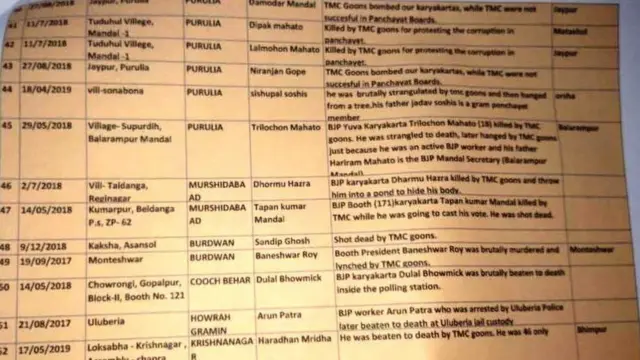 27/08/2018 Jaypur, Purulia PURULIA Damodar Mandal TMC Goons bombed our karyakartas, while TMC were not Jaypur
succesful in Panchayat Boards.
41 11/7/2018 Tuduhul Villege, PURULIA Dipak mahato Killed by TMC goons for protesting the corruption in
Mandal -1 panchayet.
42 11/7/2018 Tuduhul Villege, PURULIA Lalmohon Mahato Killed by TMC goons for protesting the corruption in Jaypur
Mandal -1 panchayet.
43 27/08/2018 Jaypur, Purulia PURULIA Niranjan Gope TMC Goons bombed our karyakartas, while TMC were not
succesful in Panchayat Boards.
44 18/04/2019 vill-sonabona PURULIA sishupal soshis he was brutally strangulated by tmc goons and then hanged arsha
from a tree.his father jadav soshis is a gram ponchayet
member
45 29/05/2018 Village- Supurdih, PURULIA Trilochon Mahato BJP Yuva Karyakarta Trilochon Mahato (18) killed by TMC Balarampur
Balarampur Mandal goons. He was strangled to death, later hanged by TMC goons
just because he was an active BJP worker and his father
Hariram Mahato is the BJP Mandal Secretary (Balarampur
Mandal)
46 2/7/2018 Vill- Taldanga, MURSHIDABA Dhormu Hazra BJP karyakarta Dharmu Hazra killed by TMC goons and throw
Reginagar AD him into a pond to hide his body.
47 14/05/2018 Kumarpur, Beldanga MURSHIDABA Tapan kumar BJP Booth (171)karyakarta Tapan kumar Mandal killed by
P.s, ZP- 62 AD Mandal TMC while he was going to cast his vote. He was shot dead.
48 9/12/2018 Kaksha, Asansol BURDWAN Sandip Ghosh Shot dead by TMC goons.
49 19/09/2017 Monteshwar BURDWAN Baneshwar Roy Booth President Baneshwar Roy was brutally murdered and Monteshwar
lynched by TMC goons.
50 14/05/2018 Chowrongi, Gopalpur, COOCH BEHAR Dulal Bhowmick BJP karyakarta Dulal Bhowmick was brutally beaten to death
Block-II, Booth No. 121 inside the polling station.
51 21/08/2017 Uluberia HOWRAH Arun Patra BJP worker Arun Patra who was arrested by Uluberia Police
GRAMIN later beaten to death at Uluberia jail custody
52 17/05/2019 Loksabha - Krishnagar, KRISHNANAGA Haradhan Mridha He was beaten to death by TMC goons. He was 46 only Bhimpur
R